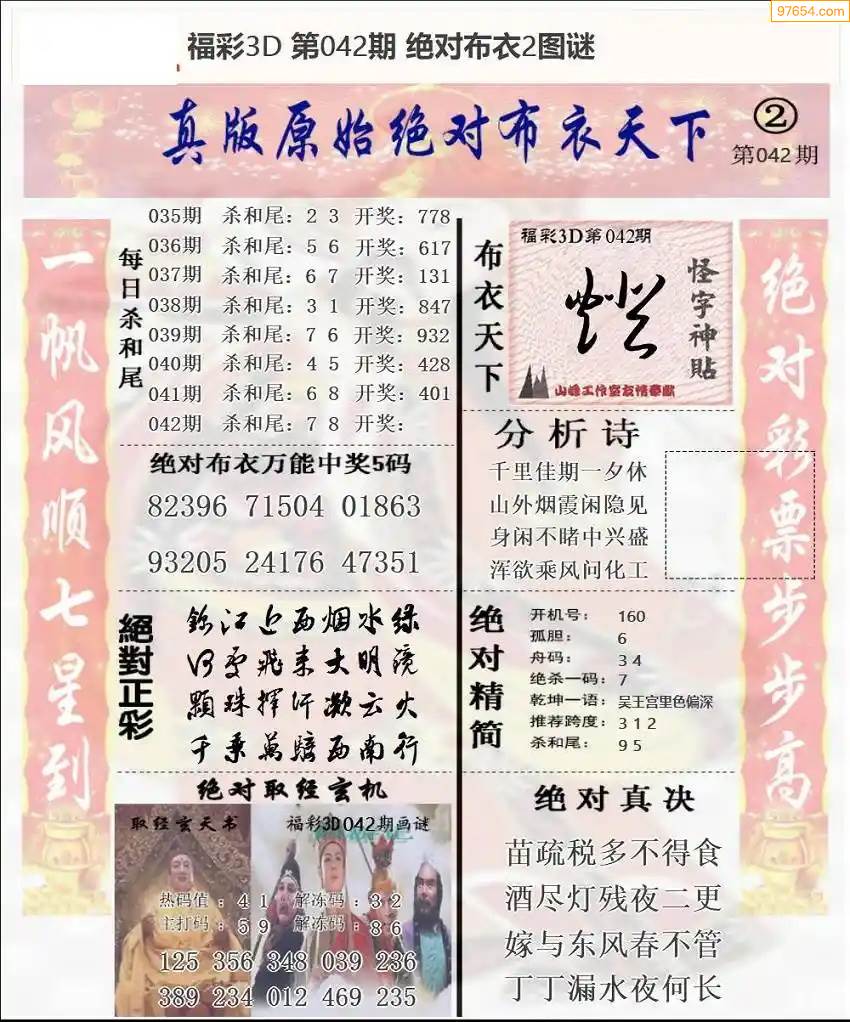 97654.com
福彩3D 第042期 绝对布衣2图谜
真版原始绝对布衣天下
②
第042期
一帆风顺七星到
每日杀和尾
035期 杀和尾：2 3 开奖：778
036期 杀和尾：5 6 开奖：617
037期 杀和尾：6 7 开奖：131
038期 杀和尾：3 1 开奖：847
039期 杀和尾：7 6 开奖：932
040期 杀和尾：4 5 开奖：428
041期 杀和尾：6 8 开奖：401
042期 杀和尾：7 8 开奖：
绝对布衣万能中奖5码
82396 71504 01863
93205 24176 47351
絕對正彩
江 西烟水绿
飛来大明镜
顆珠揮汗 云火
千乘萬騎西南行
绝对取经玄机
取经玄天书
福彩3D042期画谜
热码值：4 1 解冻码：3 2
主打码：5 9 解冻码：8 6
125 356 348 039 236
389 234 012 469 235
布衣天下
福彩3D第042期
怪字神貼
山峰工作室友情奉献
分析诗
千里佳期一夕休
山外烟霞闲隐见
身闲不睹中兴盛
浑欲乘风问化工
绝对精简
开机号： 160
孤胆： 6
舟码： 3 4
绝杀一码：7
乾坤一语：吴王宫里色偏深
推荐跨度：3 1 2
杀和尾： 9 5
绝对真决
苗疏税多不得食
酒尽灯残夜二更
嫁与东风春不管
丁丁漏水夜何长
绝对彩票步步高